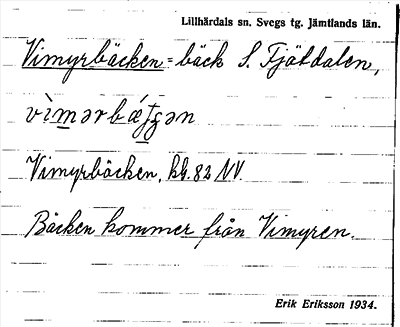 Lillhärdals sn. Svegs tg. Jämtlands län.
Vimyrbäcken = bäck S. Fjätdalen,
Vimyrbäcken, kbl. 82 NV.
Bäcken kommer från Vimyren.
Erik Eriksson 1934.